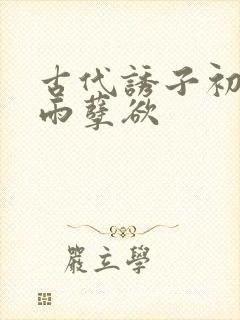 古代誘子初
雨孽欲
嚴立學